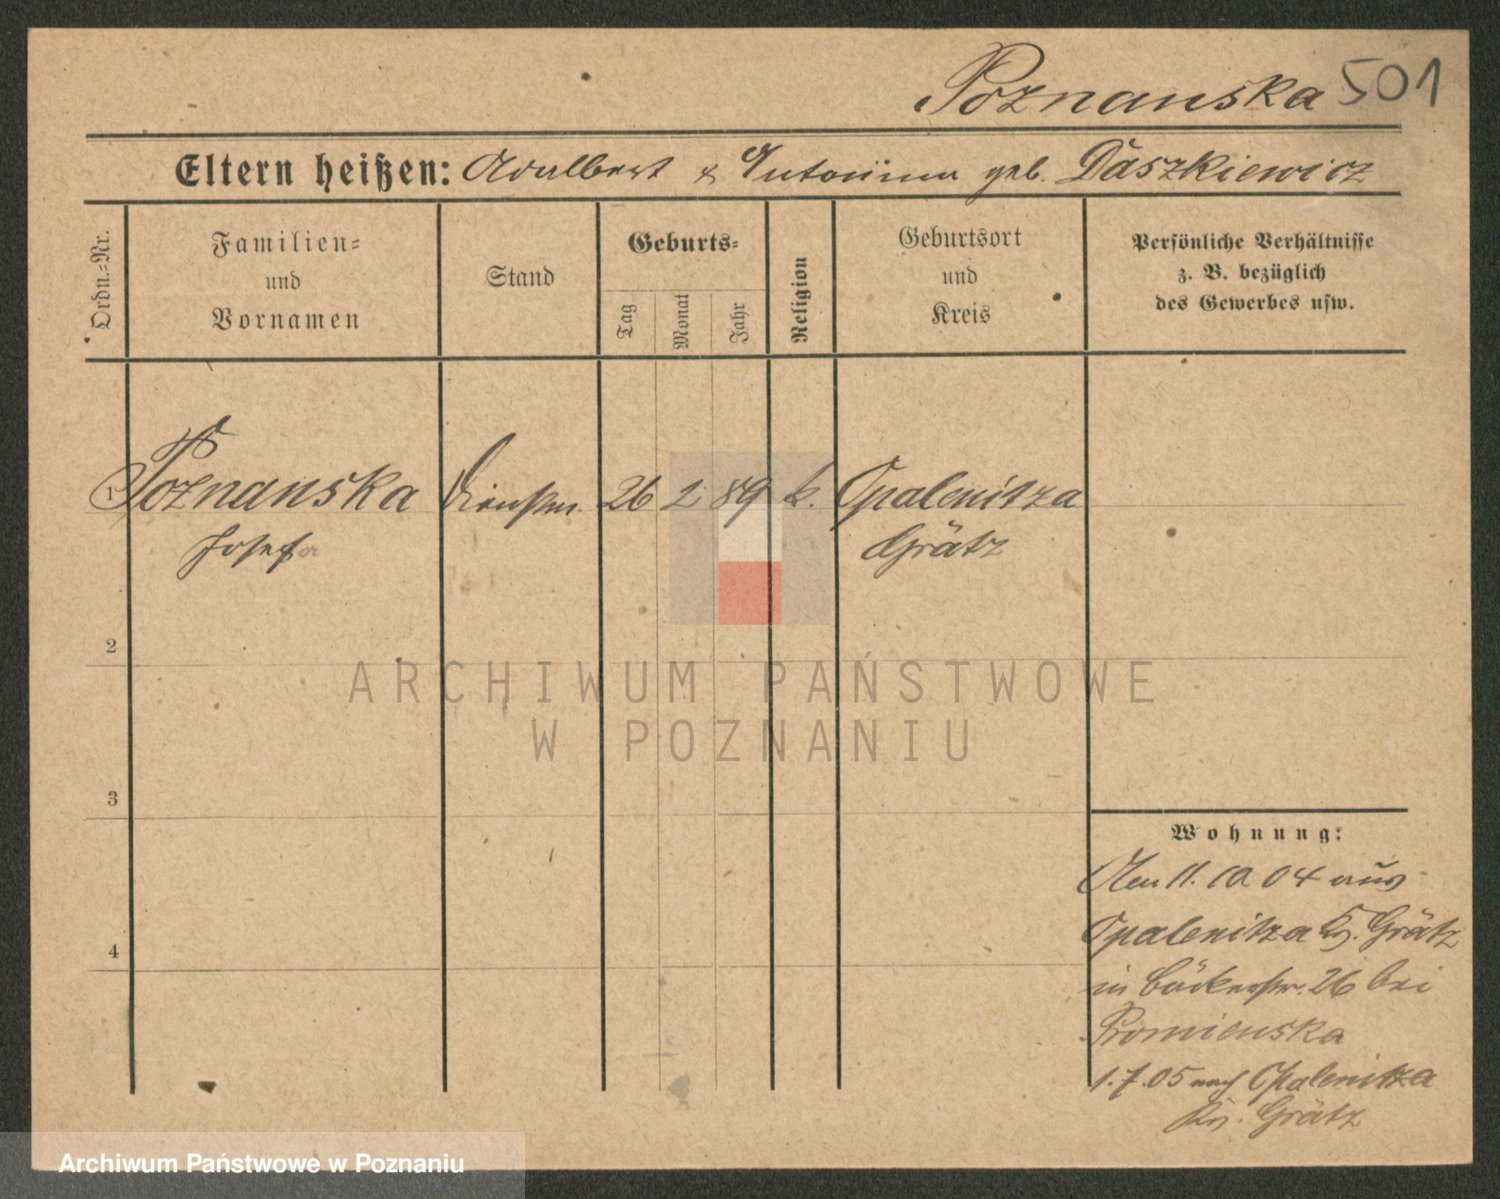 Poznanska 501
Eltern heißen: Adalbert & Antonina geb. Daszkiewicz
Ordn.-Nr.
Familien-
und
Vornamen
Stand
Geburts-
Tag
Monat
Jahr
Religion
Geburtsort
und
Kreis
Persönliche Verhältnisse
z. B. bezüglich
des Gewerbes usw.
1 Poznanska Dienstm. 26 2 89 k. Opalenitza
Josefa Grätz
2
3
4
Wohnung:
11. 10 04 aus
Opalenitza Kr. Grätz
in Bäckerstr. 26 bei
Promienska
1.7.05 nach Opalenitza
Kr. Grätz
ARCHIWUM PAŃSTWOWE
W POZNANIU
Archiwum Państwowe w Poznaniu